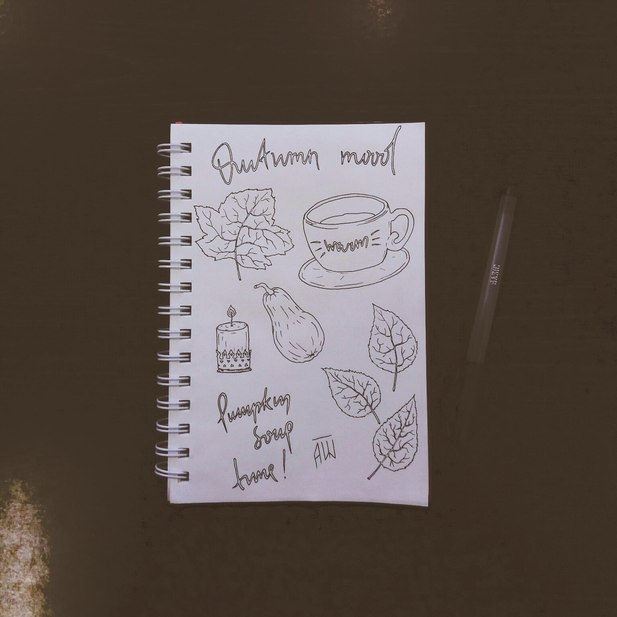 Autumn mood
warm
Pumpkin
soup
time!
AW